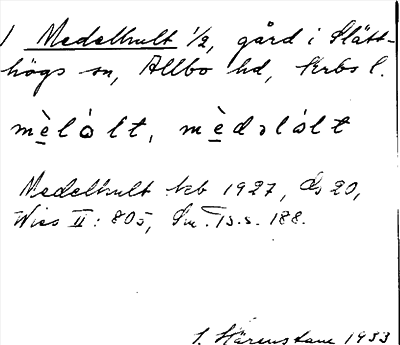 1 Medelhult 1/2, gård i Slätt-
högs sn, Allbo hd, Krbs l.
mèlòlt, mèdəlòlt
Medelhult kb 1927, Gs 20,
Wies II: 805, Sm. Ts.s. 188.
S. Härenstam 1933